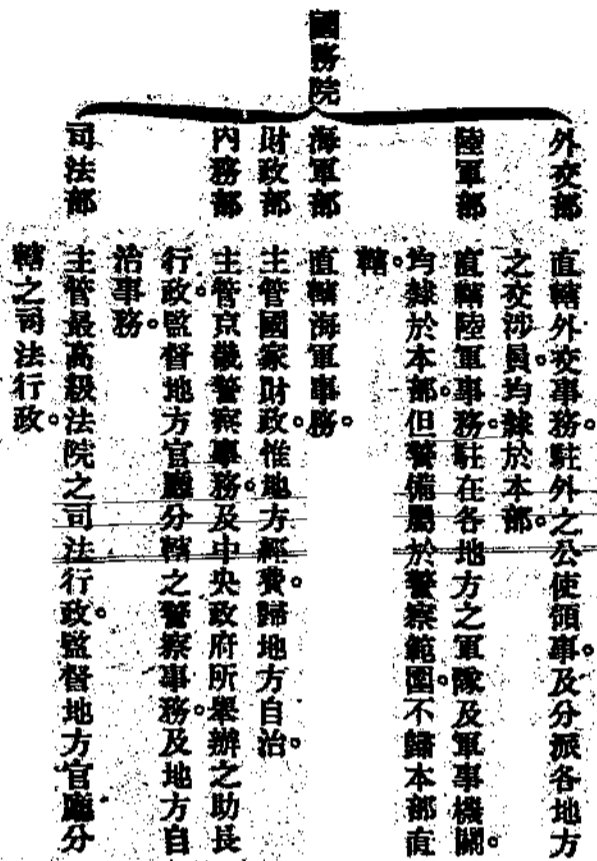 國務院
外交部
直轄外交事務。駐外之公使領事。及分派各地方
之交涉員。均隸於本部。
陸軍部
直轄陸軍事務。駐在各地方之軍隊及軍事機關。
均隸於本部。但警備屬於警察範圍。不歸本部直
轄。
海軍部
直轄海軍事務。
財政部
主管國家財政。惟地方經費。歸地方自治。
內務部
主管京畿警察事務。及中央政府所舉辦之助長
行政。監督地方官廳分轄之警察事務。及地方自
治事務。
司法部
主管最高級法院之司法行政。監督地方官廳分
轄之司法行政。